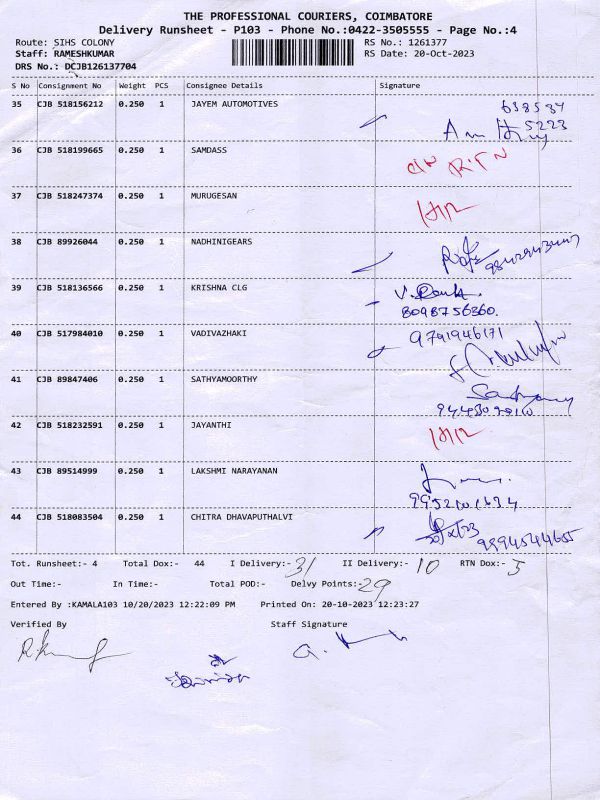 THE PROFESSIONAL COURIERS, COIMBATORE
Delivery Runsheet - P103 - Phone No.:0422-3505555 - Page No.:4
Route: SIHS COLONY
RS No.: 1261377
Staff: RAMESHKUMAR
RS Date: 20-Oct-2023
DRS No.: DCJB126137704
S No Consignment No Weight PCS Consignee Details Signature
35 CJB 518156212 0.250 1 JAYEM AUTOMOTIVES
5223
36 CJB 518199665 0.250 1 SAMDASS
37 CJB 518247374 0.250 1 MURUGESAN
38 CJB 89926044 0.250 1 NADHINIGEARS
39 CJB 518136566 0.250 1 KRISHNA CLG
8098756360.
40 CJB 517984010 0.250 1 VADIVAZHAKI 9791946171
41 CJB 89847406 0.250 1 SATHYAMOORTHY
42 CJB 518232591 0.250 1 JAYANTHI
43 CJB 89514999 0.250 1 LAKSHMI NARAYANAN
44 CJB 518083504 0.250 1 CHITRA DHAVAPUTHALVI
9994544655
Tot. Runsheet:- 4 Total Dox:- 44 I Delivery:- 31 II Delivery:- 10 RTN Dox:- 3
Out Time:- In Time:- Total POD:- Delvy Points:- 29
Entered By :KAMALA103 10/20/2023 12:22:09 PM Printed On: 20-10-2023 12:23:27
Verified By Staff Signature